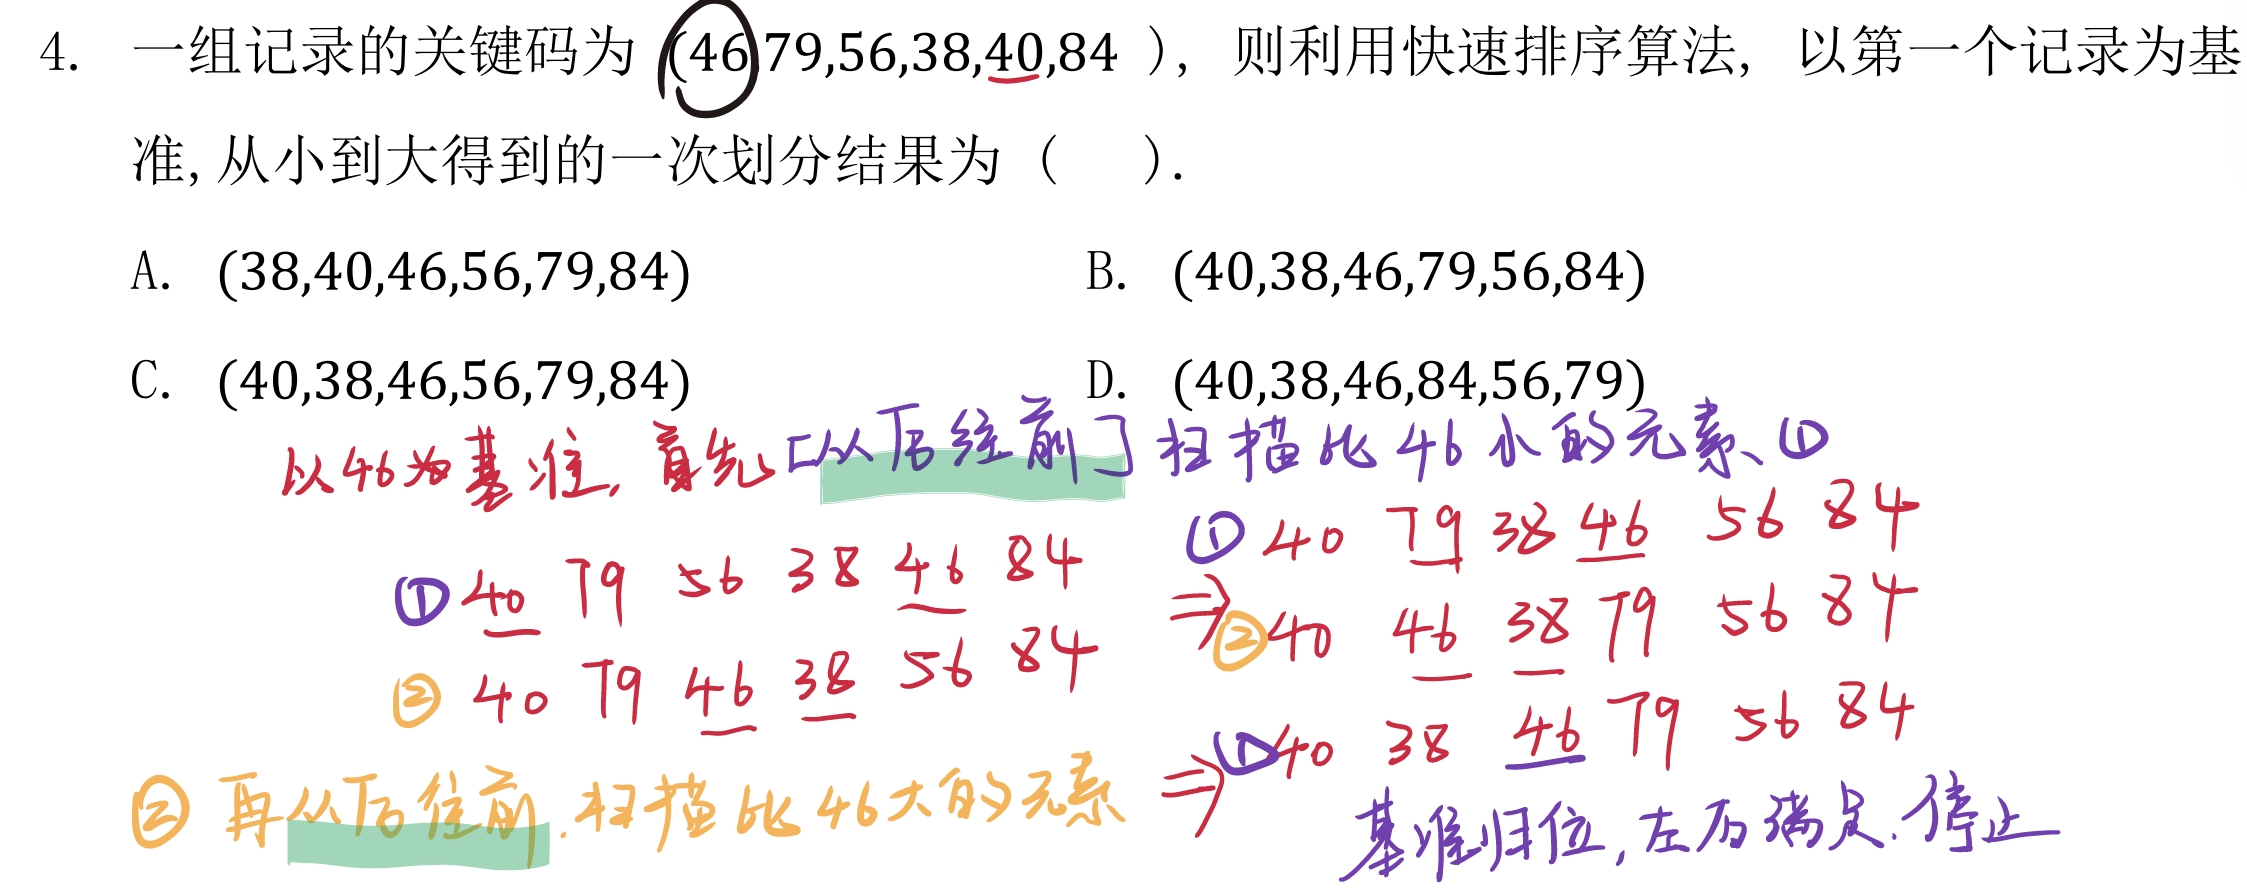 4. 一组记录的关键码为 (46,79,56,38,40,84 ), 则利用快速排序算法, 以第一个记录为基
准,从小到大得到的一次划分结果为 ( ).
A. (38,40,46,56,79,84)
B. (40,38,46,79,56,84)
C. (40,38,46,56,79,84)
D. (40,38,46,84,56,79)
以46为基准, 首先[从后往前]扫描比46小的元素、①
① 40 79 56 38 46 84
② 40 79 46 38 56 84
② 再从后往前.扫描比46大的元素
① 40 79 38 46 56 84
⇒ ② 40 46 38 79 56 84
⇒ ① 40 38 46 79 56 84
基准归位,左右满足.停止